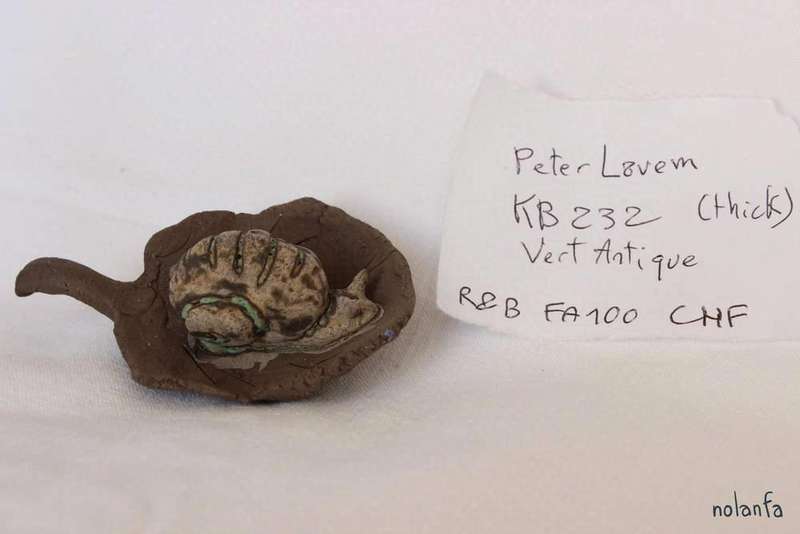 Peter Lavem
KB 232 (thick)
Vert Antique
R&B FA100 CHF
nolanfa